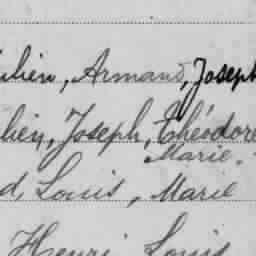 ulien, Armand, Joseph
lien, Joseph, Théodore
Marie.
d, Louis, Marie
Henri Louis